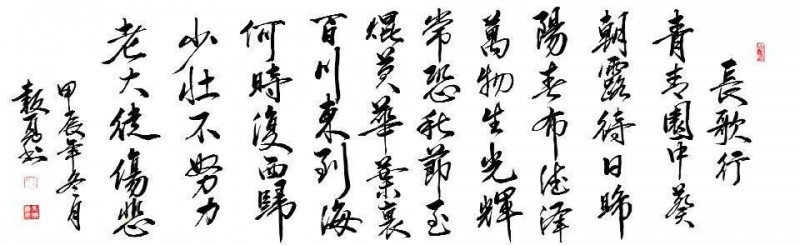 長歌行
青青園中葵
朝露待日晞
陽春布德澤
萬物生光輝
常恐秋節至
焜黃華葉衰
百川東到海
何時復西歸
少壯不努力
老大徒傷悲
甲辰年冬月